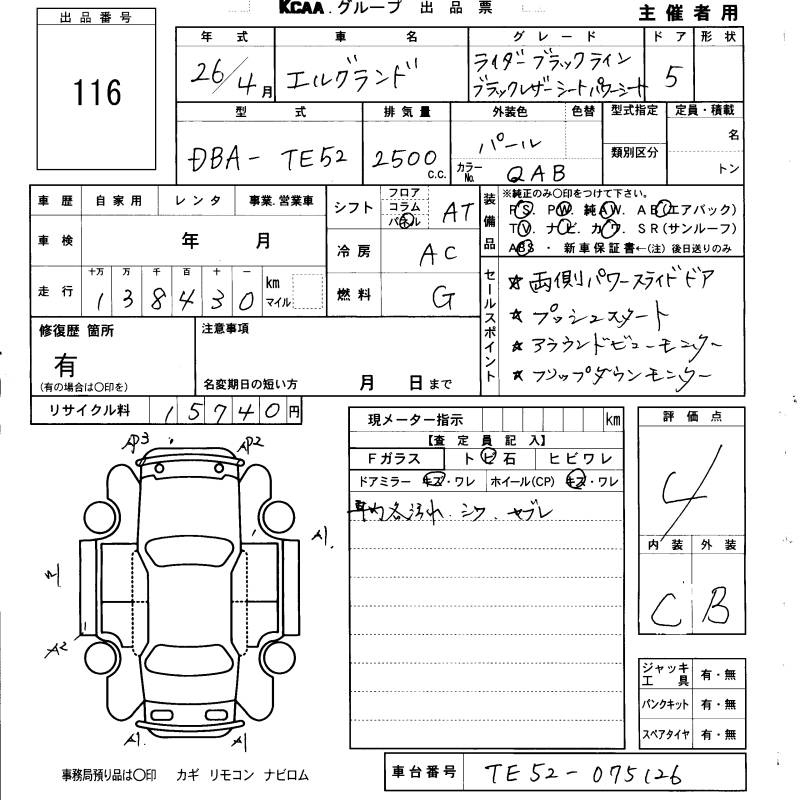 KCAA.グループ 出品票
主催者用
出品番号
116
年式 車名 グレード ドア 形状
26/4月 エルグランド ライダーブラックライン 5
ブラックレザーシートパワーシート
型式 排気量 外装色 色替 型式指定 定員・積載
DBA-TE52 2500c.c. パール 名
カラーNo. QAB 類別区分 トン
車歴 自家用 レンタ 事業.営業車
シフト フロア コラム パネル AT
装備品 ※純正のみ○印をつけて下さい。
PS. PW. 純AW. AB(エアバック)
TV. ナビ. カワ. SR(サンルーフ)
ABS・新車保証書←(注)後日送りのみ
車検 年 月
冷房 AC
走行 十万 万 千 百 十 一
138430 km マイル
燃料 G
セールスポイント
☆両側パワースライドドア
☆プッシュスタート
☆アラウンドビューモニター
☆フリップダウンモニター
修復歴 箇所
有
(有の場合は○印を)
注意事項
名変期日の短い方 月 日まで
リサイクル料 15740円
現メーター指示 km
【査定員記入】
Fガラス トビ石 ヒビワレ
ドアミラー キズ・ワレ ホイール(CP) キズ・ワレ
汚れ.シワ.ヤブレ
評価点
4
内装 外装
C B
AP3 AP2
A1
A2
A1 A1
ジャッキ工具 有・無
パンクキット 有・無
スペアタイヤ 有・無
事務局預り品は○印 カギ リモコン ナビロム
車台番号 TE52-075126